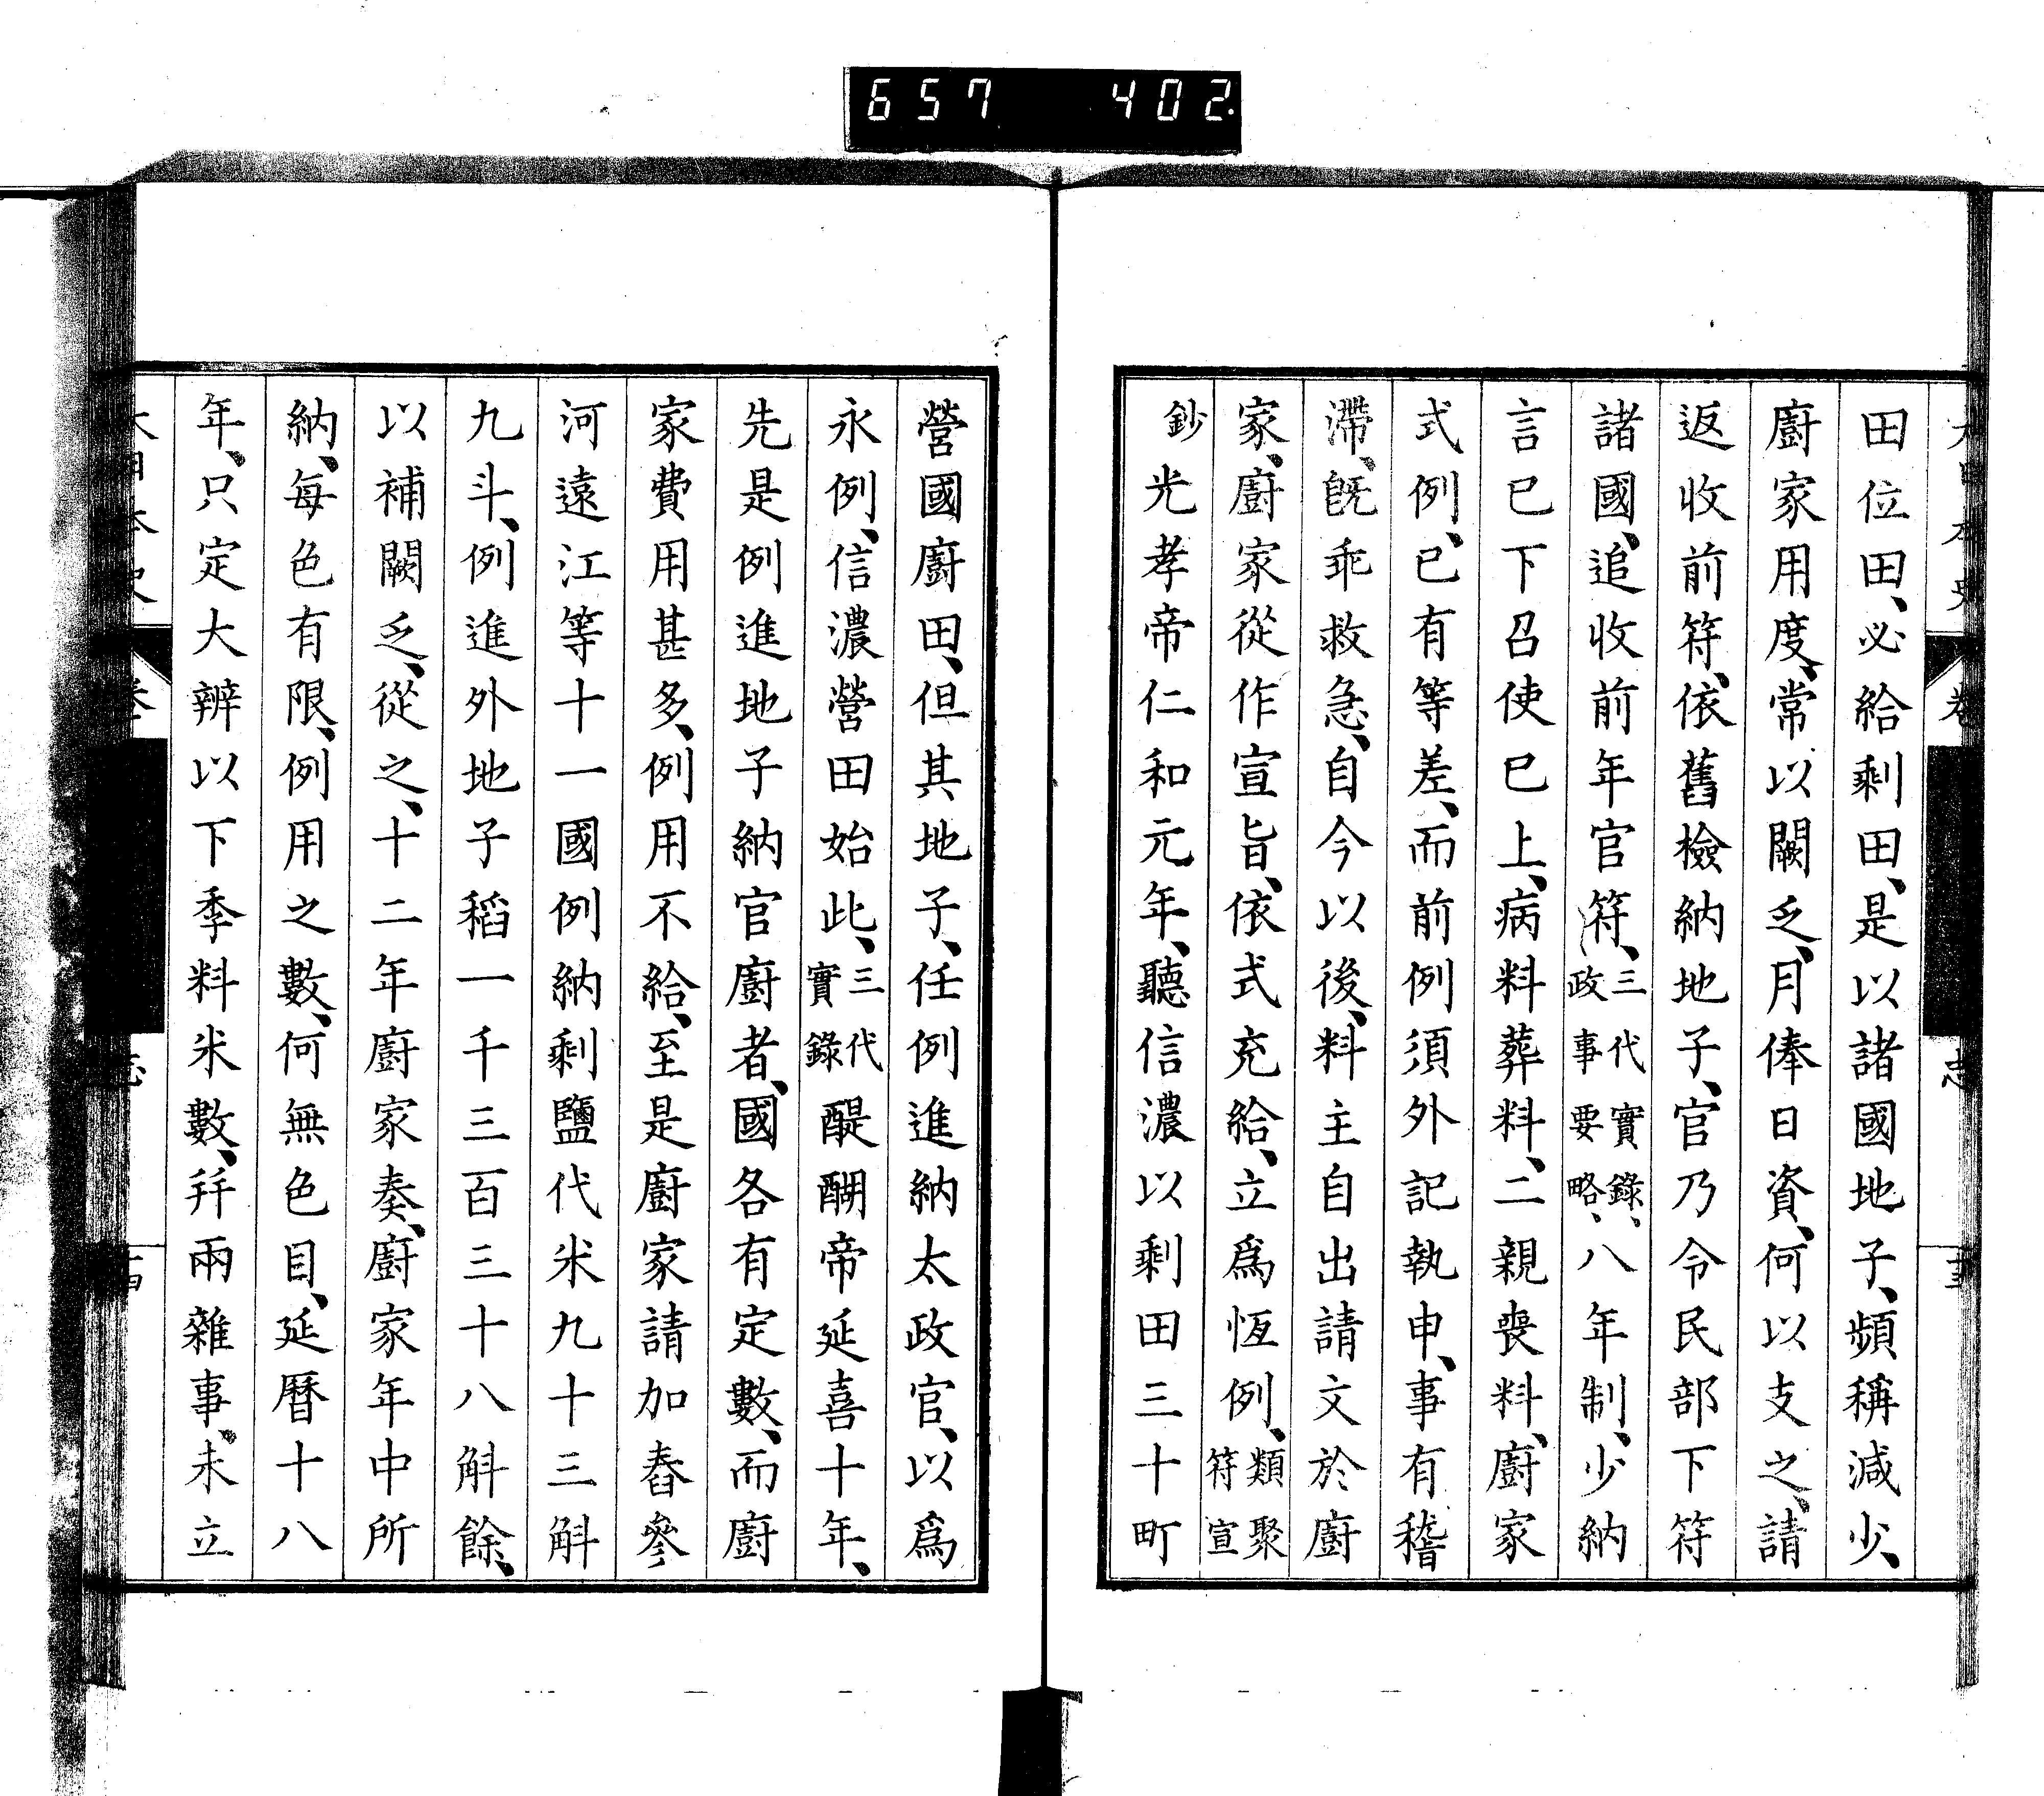 657 402
田位田、必給剩田、是以諸國地子、頻稱減少、
廚家用度、常以闕乏、月俸日資、何以支之、請
返收前符、依舊檢納地子、官乃令民部下符
諸國、追收前年官符、三代實錄、政事要略、八年制、少納
言已下召使已上、病料葬料、二親喪料、廚家
式例、已有等差、而前例須外記執申、事有稽
滯、既乖救急、自今以後、料主自出請文於廚
家、廚家從作宣旨、依式充給、立爲恆例、類聚符宣
鈔光孝帝仁和元年、聽信濃以剩田三十町
營國廚田、但其地子、任例進納太政官、以爲
永例、信濃營田始此、三代實錄醍醐帝延喜十年、
先是例進地子納官廚者、國各有定數、而廚
家費用甚多、例用不給、至是廚家請加舂參
河遠江等十一國例納剩鹽代米九十三斛
九斗、例進外地子稻一千三百三十八斛餘、
以補闕乏、從之、十二年廚家奏、廚家年中所
納、每色有限、例用之數、何無色目、延曆十八
年、只定大辨以下季料米數、幷兩雜事、未立